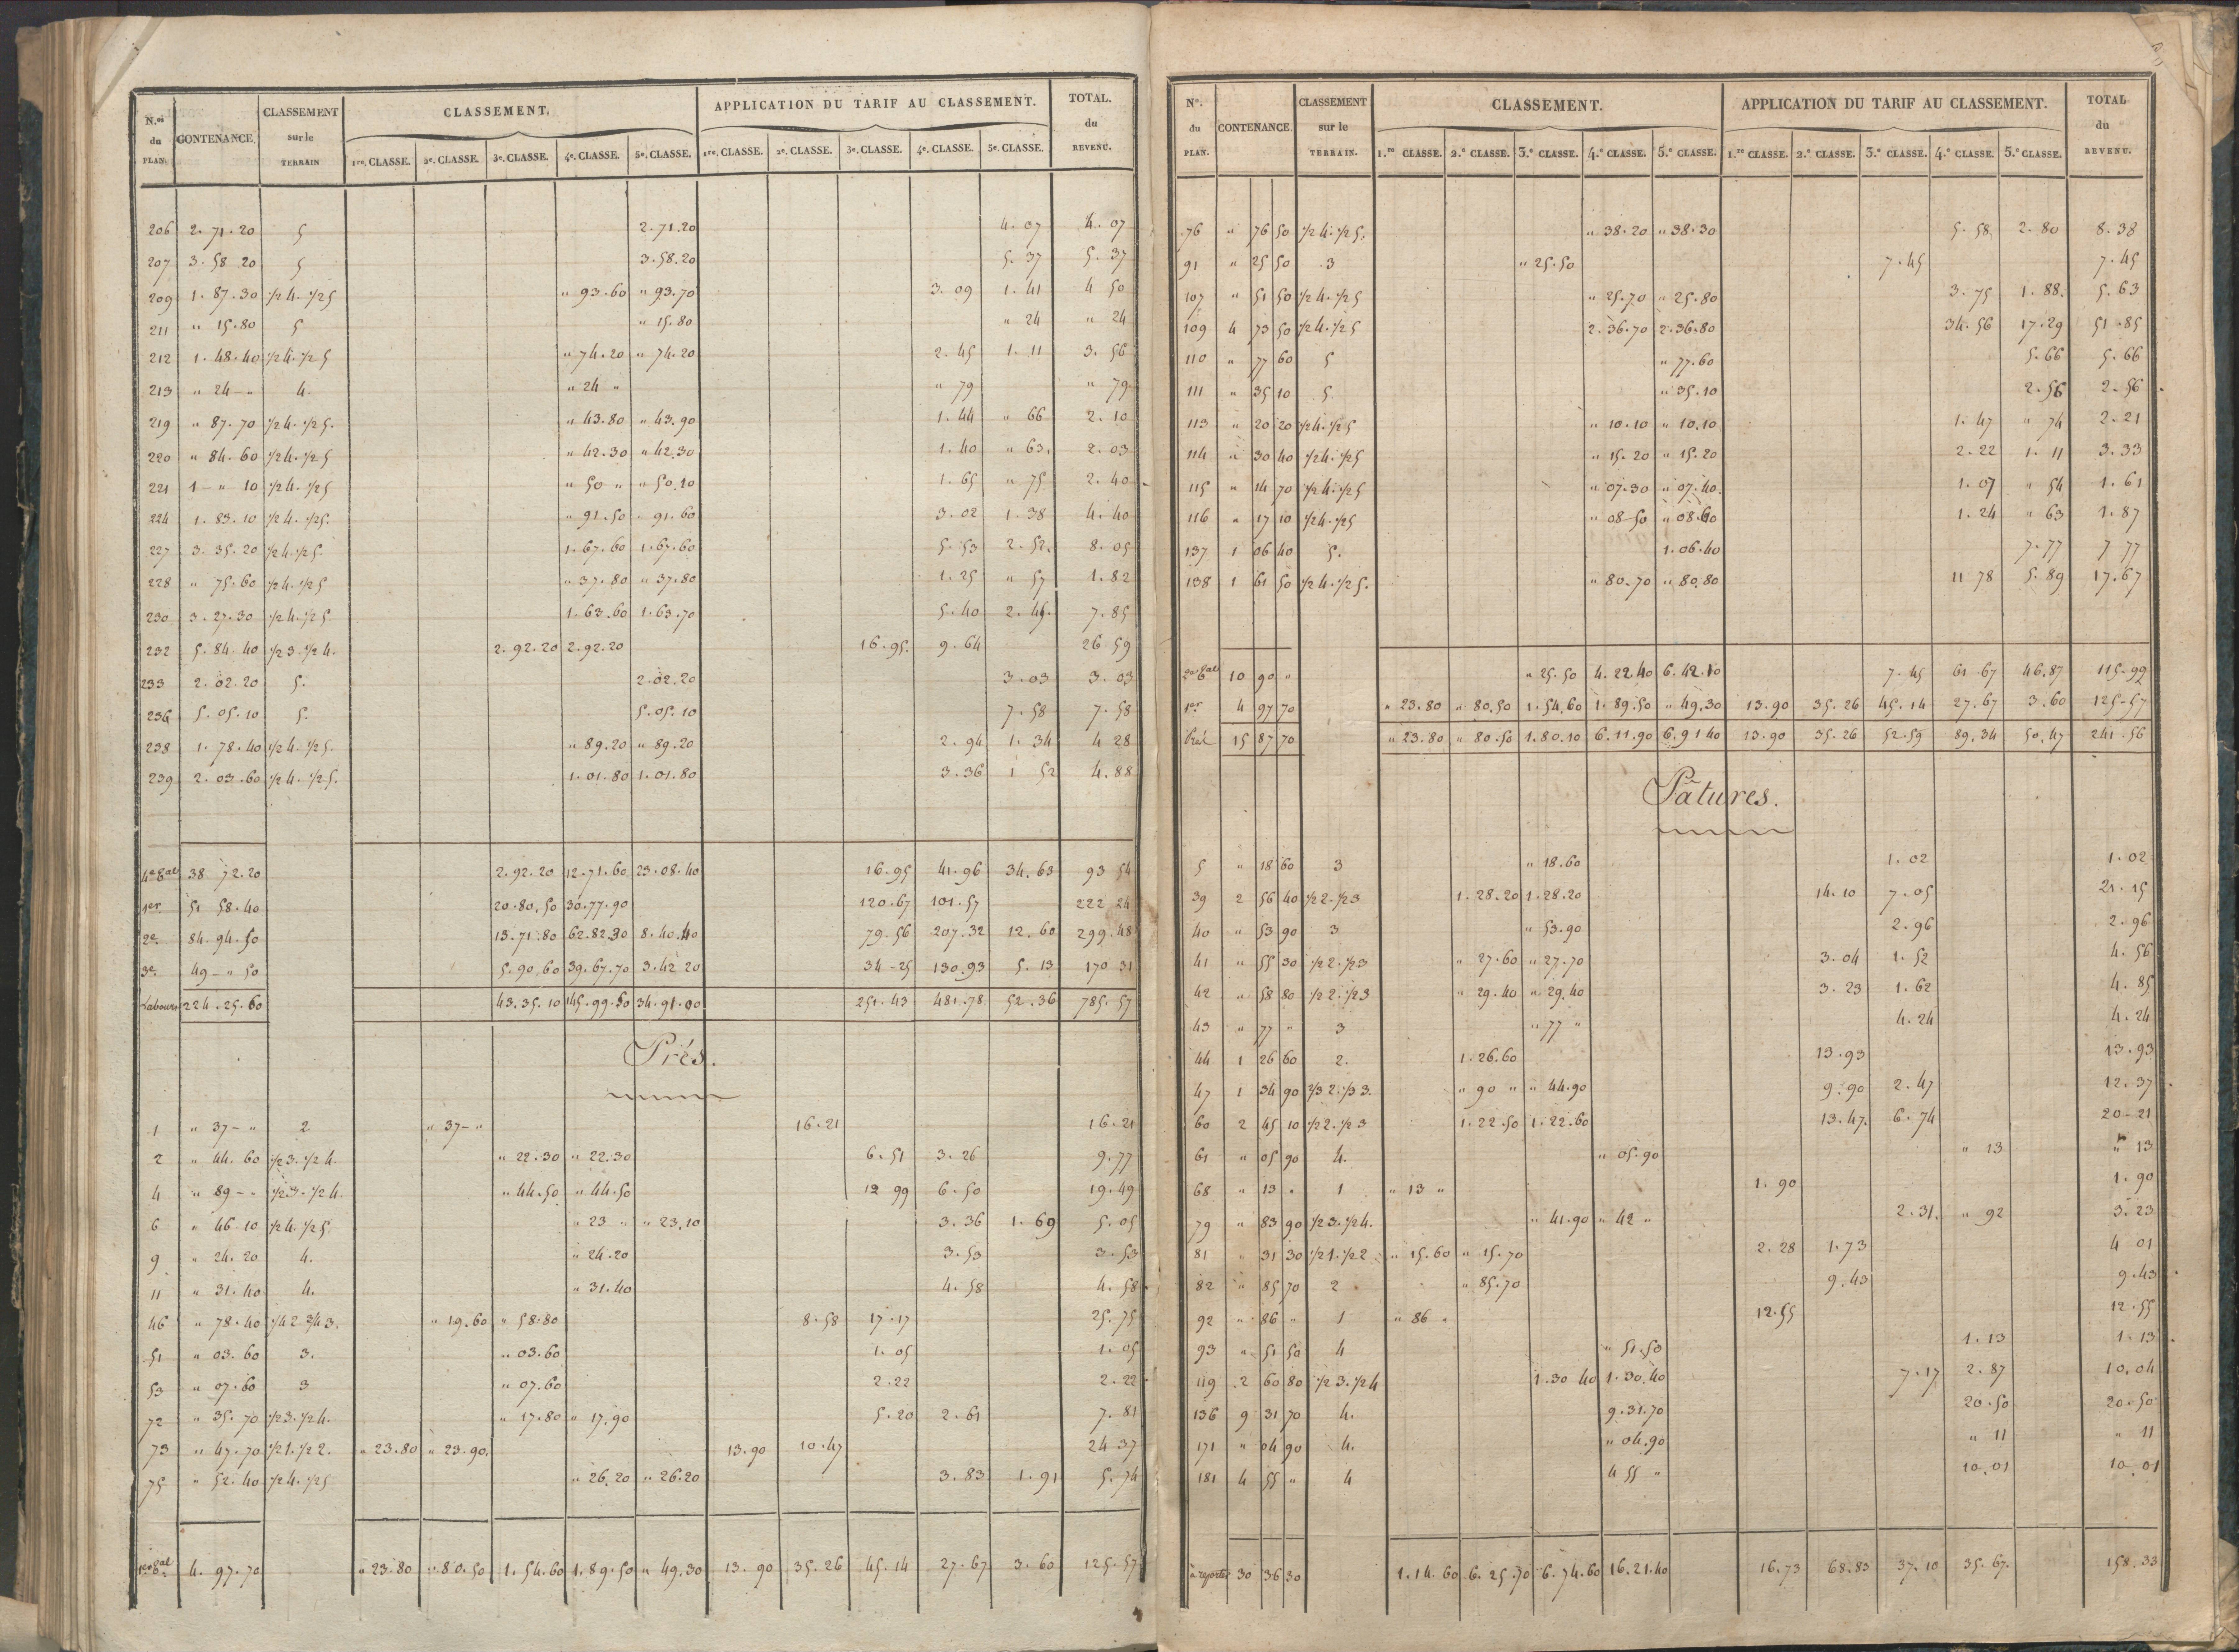 N.os du PLAN. CONTENANCE. CLASSEMENT sur le TERRAIN CLASSEMENT. APPLICATION DU TARIF AU CLASSEMENT. TOTAL. du REVENU.
1re. CLASSE. 2e. CLASSE. 3e. CLASSE. 4e. CLASSE. 5e. CLASSE. 1re. CLASSE. 2e. CLASSE. 3e. CLASSE. 4e. CLASSE. 5e. CLASSE.
206 2. 71. 20 5 2. 71. 20 4. 07 4. 07
207 3. 58 20 5 3. 58. 20 5. 37 5. 37
209 1. 87. 30 1/2 4. 1/2 5 " 93. 60 " 93. 70 3. 09 1. 41 4 50
211 " 15. 80 5 " 15. 80 " 24 " 24
212 1. 48. 40 1/2 4. 1/2 5 " 74. 20 " 74. 20 2. 45 1. 11 3. 56
213 " 24 " 4. " 24 " " 79 " 79
219 " 87. 70 1/2 4. 1/2 5. " 43. 80 " 43. 90 1. 44 " 66 2. 10
220 " 84. 60 1/2 4. 1/2 5 " 42. 30 " 42. 30 1. 40 " 63. 2. 03
221 1 - " 10 1/2 4. 1/2 5 " 50 " " 50. 10 1. 65 " 75 2. 40
224 1. 83. 10 1/2 4. 1/2 5. " 91. 50 " 91. 60 3. 02 1. 38 4. 40
227 3. 35. 20 1/2 4. 1/2 5. 1. 67. 60 1. 67. 60 5. 53 2. 52. 8. 05
228 " 75. 60 1/2 4. 1/2 5 " 37. 80 " 37. 80 1. 25 " 57 1. 82
230 3. 27. 30 1/2 4. 1/2 5. 1. 63. 60 1. 63. 70 5. 40 2. 45. 7. 85
232 5. 84. 40 1/2 3. 1/2 4. 2. 92. 20 2. 92. 20 16. 95. 9. 64 26 59
233 2. 02. 20 5. 2. 02. 20 3. 03 3. 03
236 5. 05. 10 5. 5. 05. 10 7. 58 7. 58
238 1. 78. 40 1/2 4. 1/2 5. " 89. 20 " 89. 20 2. 94 1. 34 4 28
239 2. 03. 60 1/2 4. 1/2 5. 1. 01. 80 1. 01. 80 3. 36 1 52 4. 88
38 72. 20 2. 92. 20 12. 71. 60 23. 08. 40 16. 95 41. 96 34. 63 93 54
1er. 51 58. 40 20. 80. 50 30. 77. 90 120. 67 101. 57 222 24
2e. 84. 94. 50 13. 71. 80 62. 82. 30 8. 40. 40 79. 56 207. 32 12. 60 299. 48
3e. 49 - " 50 5. 90. 60 39. 67. 70 3. 42 20 34 - 25 130. 93 5. 13 170 31
Labours 224. 25. 60 43. 35. 10 145. 99. 50 34. 91. 00 251. 43 481. 78. 52. 36 785. 57
Prés.
1 " 37 - " 2 " 37 - " 16. 21 16. 21
2 " 44. 60 1/2 3. 1/2 4. " 22. 30 " 22. 30 6. 51 3. 26 9. 77
4 " 89 - " 1/2 3. 1/2 4. " 44. 50 " 44. 50 12 99 6. 50 19. 49
6 " 46 10 1/2 4. 1/2 5. " 23 " " 23. 10 3. 36 1. 69 5. 05
9 " 24. 20 4. " 24. 20 3. 53 3. 53
11 " 31. 40 4. " 31. 40 4. 58 4. 58
46 " 78. 40 1/4 2 3/4 3. " 19. 60 " 58. 80 8. 58 17. 17 25. 75
51 " 03. 60 3. " 03. 60 1. 05 1. 05
53 " 07. 60 3 " 07. 60 2. 22 2. 22
72 " 35. 70 1/2 3. 1/2 4. " 17. 80 " 17. 90 5. 20 2. 61 7. 81
73 " 47. 70 1/2 1. 1/2 2. " 23. 80 " 23. 90. 13. 90 10. 47 24 37
75 " 52. 40 1/2 4. 1/2 5 " 26. 20 " 26. 20 3. 83 1. 91 5. 74
4. 97. 70 " 23. 80 " 80. 50 1. 54. 60 1. 89. 50 " 49. 30 13. 90 35. 26 45. 14 27. 67 3. 60 125. 57
N°. du PLAN. CONTENANCE. CLASSEMENT sur le TERRAIN. CLASSEMENT. APPLICATION DU TARIF AU CLASSEMENT. TOTAL du REVENU.
1.re CLASSE. 2.e CLASSE. 3.e CLASSE. 4.e CLASSE. 5.e CLASSE. 1.re CLASSE. 2.e CLASSE. 3.e CLASSE. 4.e CLASSE. 5.e CLASSE.
76 " 76 50 1/2 4. 1/2 5. " 38. 20 " 38. 30 5. 58 2. 80 8. 38
91 " 25 50 3 " 25. 50 7. 45 7. 45
107 " 51 50 1/2 4. 1/2 5 " 25. 70 " 25. 80 3. 75 1. 88. 5. 63
109 4 73 50 1/2 4. 1/2 5 2. 36. 70 2. 36. 80 34. 56 17. 29 51. 85
110 " 77 60 5 " 77. 60 5. 66 5. 66
111 " 35 10 5. " 35. 10 2. 56 2. 56
113 " 20 20 1/2 4. 1/2 5 " 10. 10 " 10. 10 1. 47 " 74 2. 21
114 " 30 40 1/2 4. 1/2 5 " 15. 20 " 15. 20 2. 22 1. 11 3. 33
115 " 14 70 1/2 4. 1/2 5 " 07. 30 " 07. 40. 1. 07 " 54 1. 61
116 " 17 10 1/2 4. 1/2 5 " 08 50 " 08. 60 1. 24 " 63 1. 87
137 1 06 40 5. 1. 06. 40 7. 77 7 77
138 1 61 50 1/2 4. 1/2 5. " 80. 70 " 80. 80 11 78 5. 89 17. 67
10 90 " " 25. 50 4. 22. 40 6. 42. 10 7. 45 61 67 46. 87 115. 99
1er 4 97 70 " 23. 80 " 80. 50 1. 54. 60 1. 89. 50 " 49. 30 13. 90 35. 26 45. 14 27. 67 3. 60 125 - 57
Prés 15 87 70 " 23. 80 " 80. 50 1. 80. 10 6. 11. 90 6. 91 40 13. 90 35. 26 52. 59 89. 34 50. 47 241. 56
Pâtures.
5 " 18 60 3 " 18. 60 1. 02 1. 02
39 2 56 40 1/2 2. 1/2 3 1. 28. 20 1. 28. 20 14. 10 7. 05 21. 15
40 " 53 90 3 " 53. 90 2. 96 2. 96
41 " 55 30 1/2 2. 1/2 3 " 27. 60 " 27. 70 3. 04 1. 52 4. 56
42 " 58 80 1/2 2. 1/2 3 " 29. 40 " 29. 40 3. 23 1. 62 4. 85
43 " 77 " 3 " 77 " 4. 24 4. 24
44 1 26 60 2. 1. 26. 60 13. 93 13. 93
47 1 34 90 2/3 2. 1/3 3. " 90 " " 44. 90 9. 90 2. 47 12. 37
60 2 45 10 1/2 2. 1/2 3 1. 22. 50 1. 22. 60 13. 47. 6. 74 20 - 21
61 " 05 90 4. " 05. 90 " 13 " 13
68 " 13 " 1 " 13 " 1. 90 1. 90
79 " 83 90 1/2 3. 1/2 4. " 41. 90 " 42 " 2. 31. " 92 3. 23
81 " 31 30 1/2 1. 1/2 2 " 15. 60 " 15. 70 2. 28 1. 73 4 01
82 " 85 70 2 " 85. 70 9. 43 9. 43
92 " 86 " 1 " 86 " 12. 55 12. 55
93 " 51 50 4 " 51. 50 1. 13 1. 13
119 2 60 80 1/2 3. 1/2 4 1. 30 40 1. 30. 40 7. 17 2. 87 10. 04
136 9 31 70 4. 9. 31. 70 20. 50 20. 50
171 " 04 90 4. " 04. 90 " 11 " 11
181 4 55 " 4 4 55 " 10. 01 10. 01
à reporter 30 36 30 1. 14. 60 6. 25. 70 6. 74. 60 16. 21. 40 16. 73 68. 83 37. 10 35. 67. 158. 33